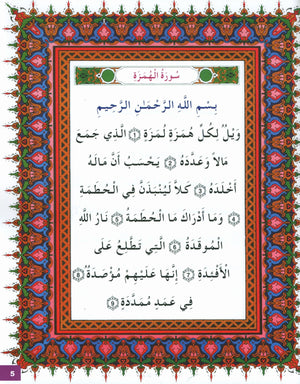 سُورَةُ الْهُمَزَةِ
بِسْمِ اللَّهِ الرَّحْمَٰنِ الرَّحِيمِ
وَيْلٌ لِكُلِّ هُمَزَةٍ لُمَزَةٍ ١ الَّذِي جَمَعَ
مَالاً وَعَدَّدَهُ ٢ يَحْسَبُ أَنَّ مَالَهُ
أَخْلَدَهُ ٣ كَلاَّ لَيُنْبَذَنَّ فِي الْحُطَمَةِ
٤ وَمَا أَدْرَاكَ مَا الْحُطَمَةُ ٥ نَارُ اللَّهِ
الْمُوقَدَةُ ٦ الَّتِي تَطَّلِعُ عَلَى
الْأَفْئِدَةِ ٧ إِنَّهَا عَلَيْهِمْ مُؤْصَدَةٌ ٨
فِي عَمَدٍ مُمَدَّدَةٍ ٩
5